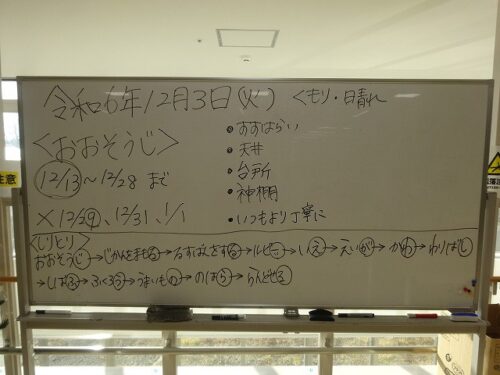 令和6年12月3日(火) くもり・日晴れ
<おおそうじ>
12/13〜12/28 まで
× 12/29、12/31、1/1
・すすはらい
・天井
・台所
・神棚
・いつもより丁寧に
<しりとり>
おおそうじ→じかんをまもる→るすばんをする→ルビー→いえ→えいが→かわ→わりばし
→しばふ→ふくろう→うまいもの→のばら→らんどせる
注意